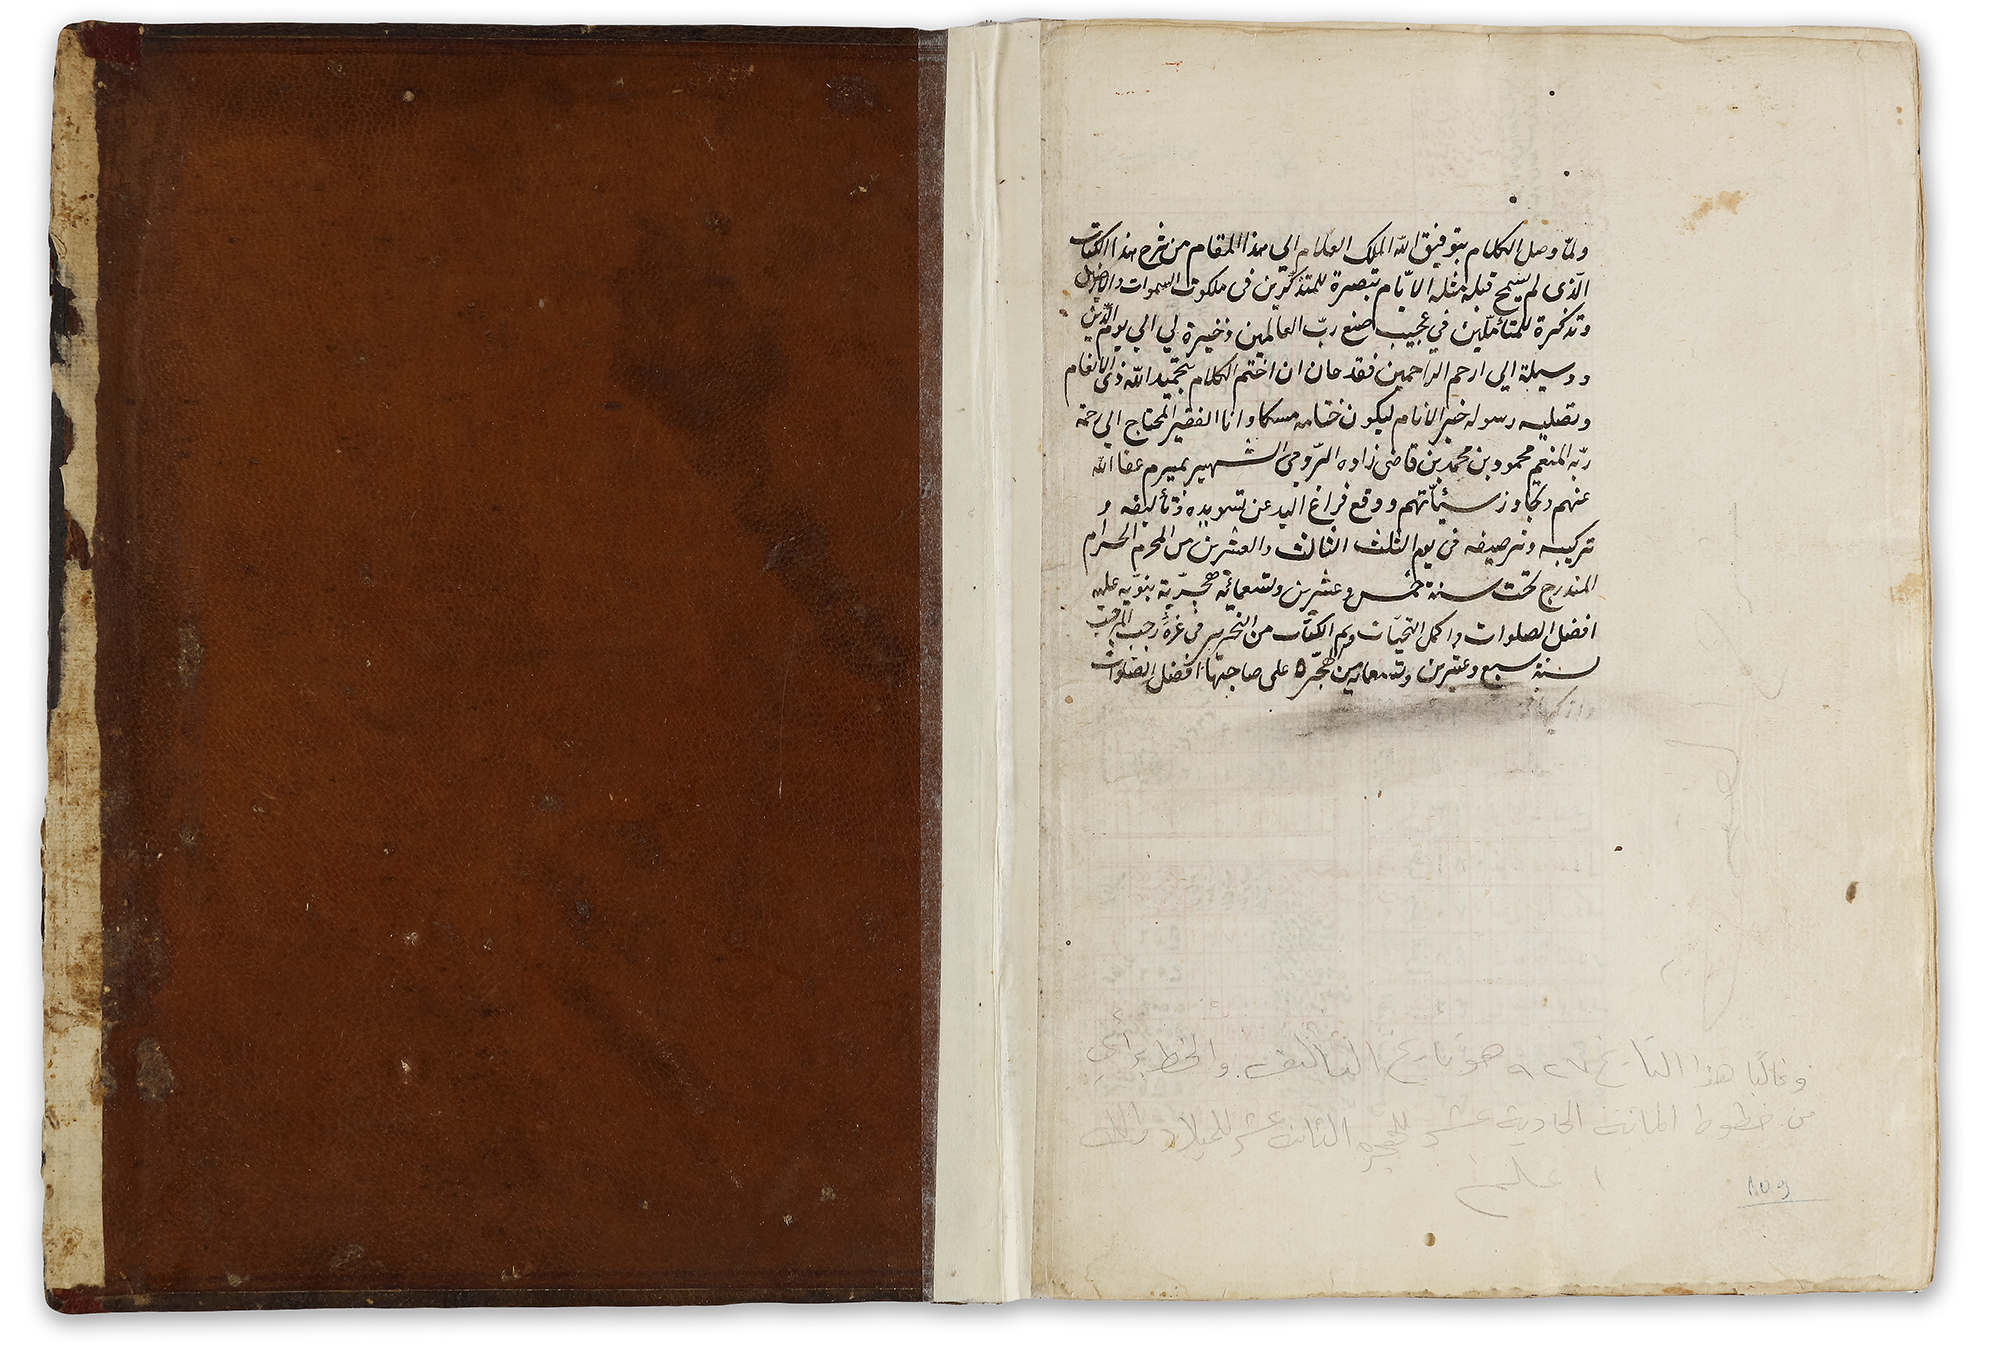 ولمّا وصل الكلام بتوفيق الله الملك العلّام الى هذا المقام من شرح هذا الكتاب
الّذى لم يسمح قبله بمثله الايّام تبصرة للمتذكّرين فى ملكوت السموات والارضين
وتذكرة للمتأمّلين في عجيب صنع ربّ العالمين ذخيرة لي الي يوم الدّين
ووسيلة الي ارحم الراحمين فقد حان ان اختم الكلام بتحميد الله ذى الانعام
وتصليه رسوله خير الانام ليكون ختامه مسكا وانا الفقير المحتاج الي رحمة
ربّه المنعم محمود بن محمد بن قاضى زاده الرّومى الشهير بميرم عفا الله
عنهم وتجاوز سيئاتهم ووقع فراغ اليد عن تسويده وتأليفه و
تركيبه وترصيفه فى يوم الثلث الثالث والعشرين من المحرم الحرام
المندرج تحت سنة خمس وعشرين وتسعمائة هجريّة نبويّه عليه
افضل الصلوات واكمل التحيّات وتم الكتاب من التحرير فى غرة رجب المرجب
سنة سبع وعشرين وتسعمايه من الهجرة على صاحبها افضل الصّلوات
وازكيها
وغالبًا هذا التاريخ ٩٢٧ هو تاريخ التأليف. والخط برأيي
من خطوط المائة الحادية عشر للهجرة الثانى عشر للميلاد والله
اعلم
١٥٩